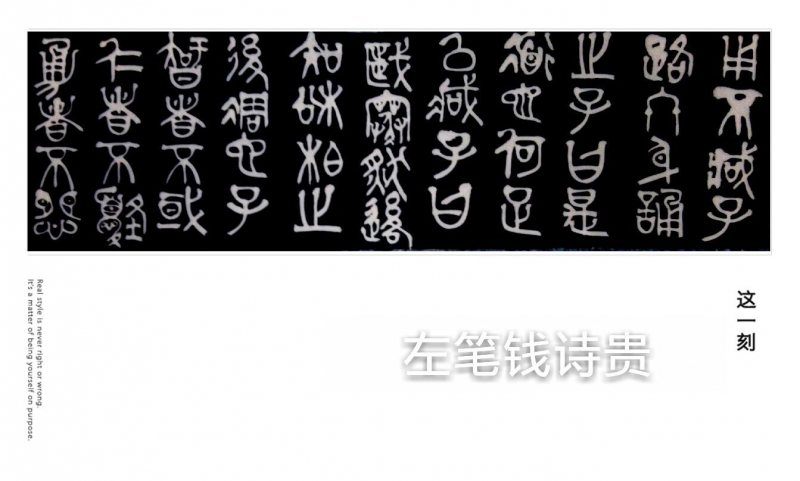 用不臧子
路終身誦
之子曰是
道也何足
以臧子曰
歲寒然後
知松柏之
後凋也子
曰智者不惑
仁者不憂
勇者不懼
这一刻
左笔钱诗贵
Real style is never right or wrong.
It's a matter of being yourself on purpose.